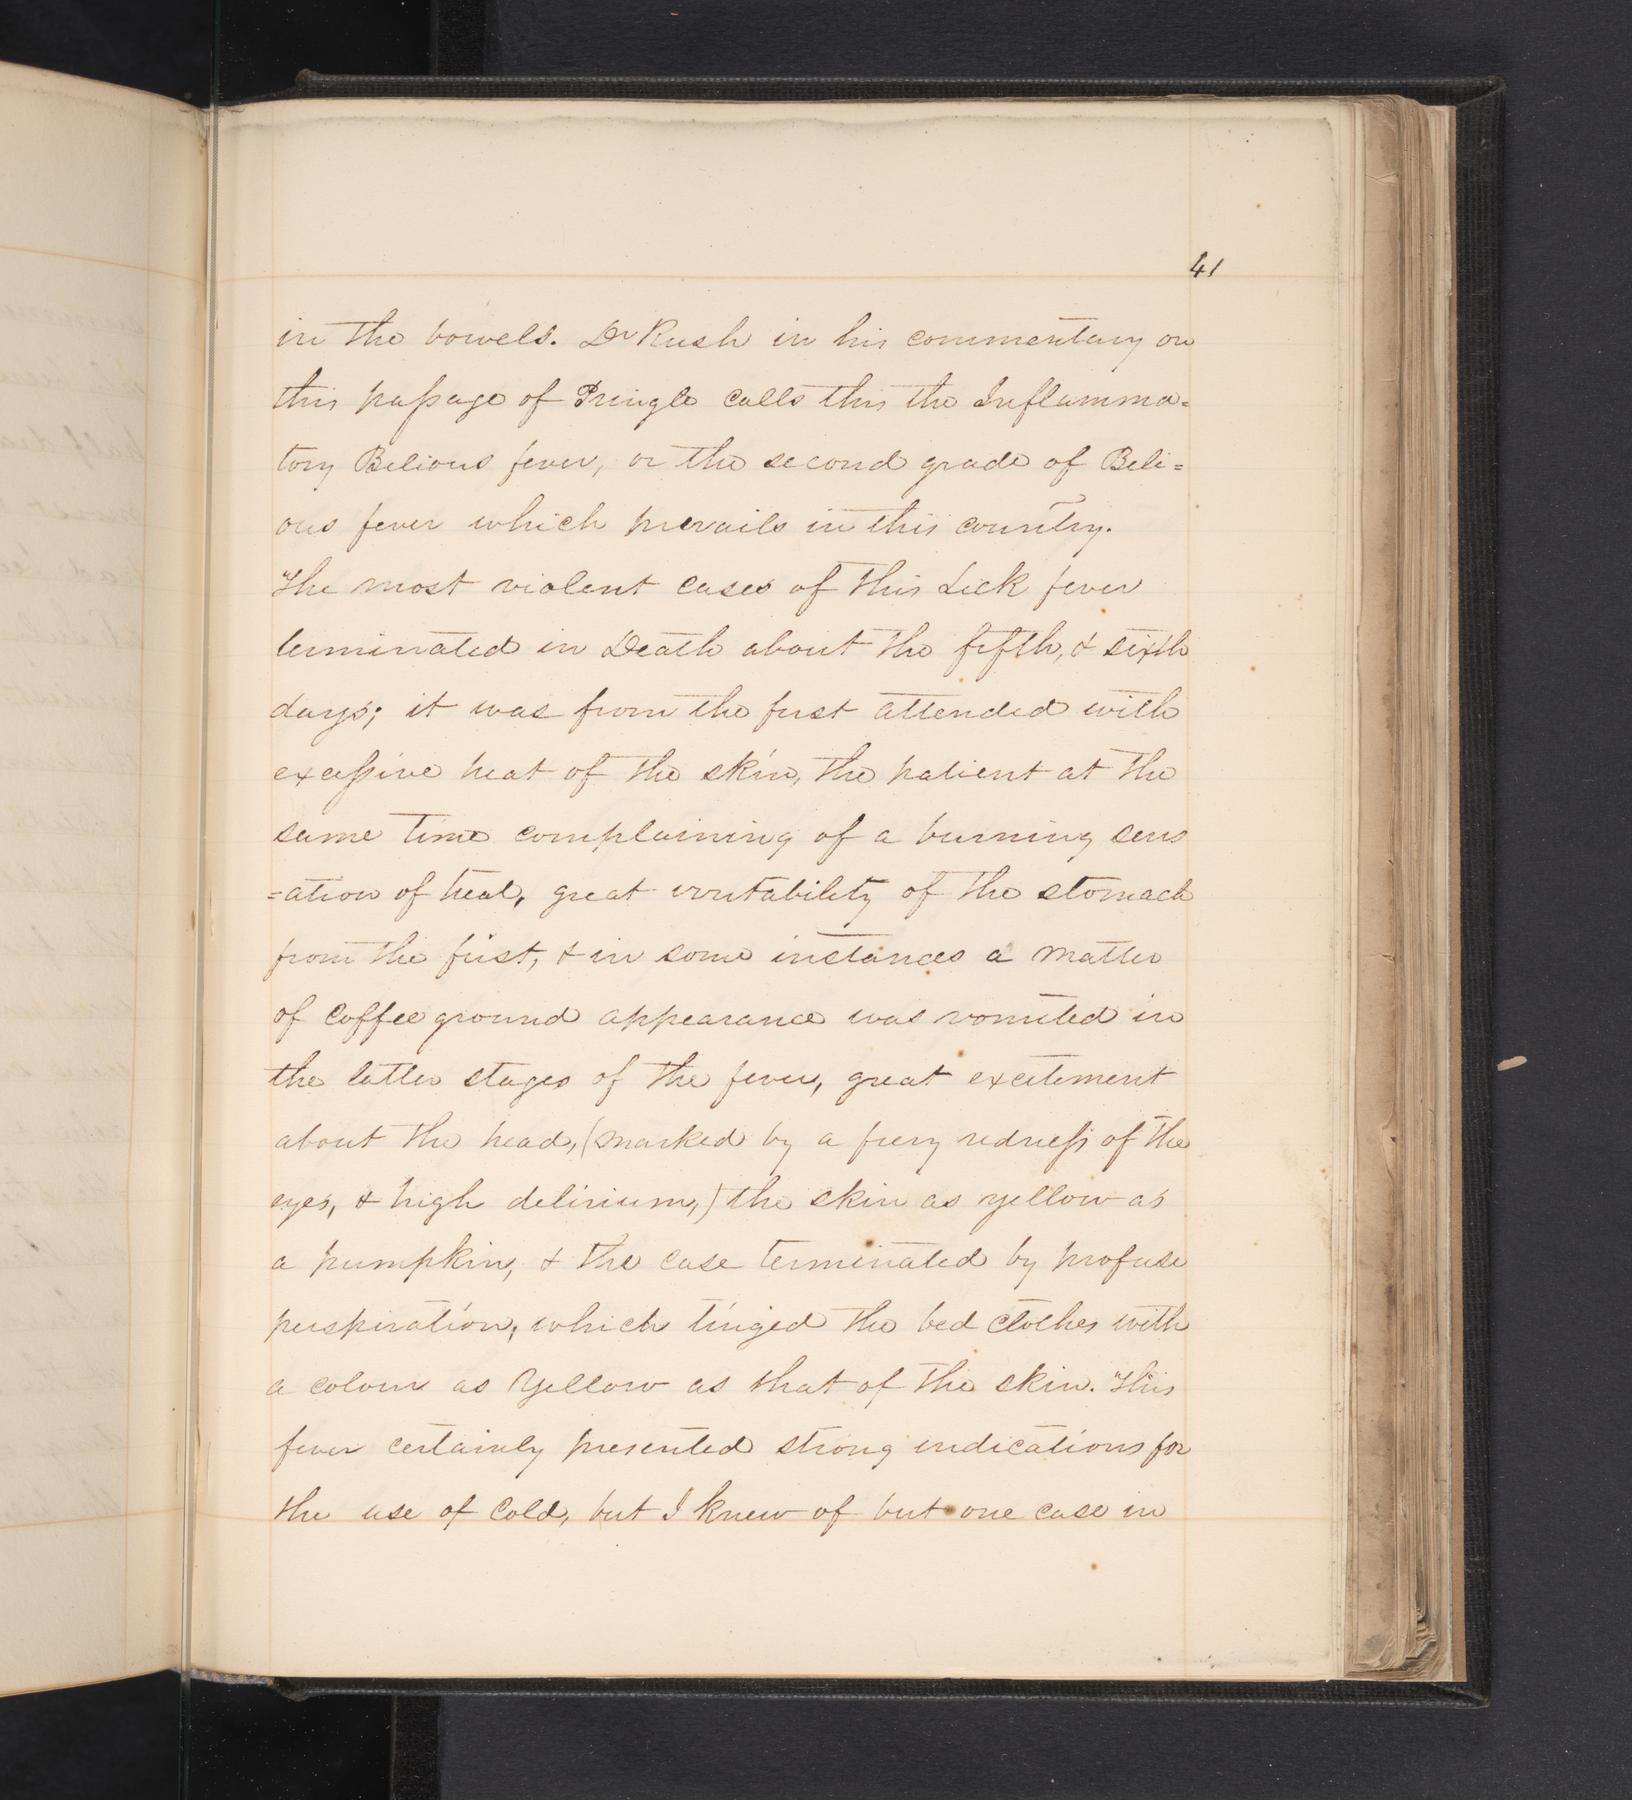 41
in the bowels. Dr Rush in his commentary on
this paſsage of Pringle calls this the Inflamma=
tory Belious fever, or the second grade of Beli=
ous fever which prevails in this country.
The most violent cases of this Lick fever
terminated in Death about the fifth, & sixth
days; it was from the first attended with
exceſsive heat of the skin, the patient at the
same time complaining of a burning sens
=ation of heat, great irritability of the stomach
from the first, & in some instances a matter
of Coffee ground appearance was vomited in
the latter stages of the fever, great excitement
about the head, (marked by a fiery redneſs of the
eyes, & high delirium,) the skin as yellow as
a pumpkin, & the case terminated by profuse
perspiration, which tinged the bed clothes with
a colour as yellow as that of the skin. This
fever certainly presented strong indications for
the use of Cold, but I knew of but one case in